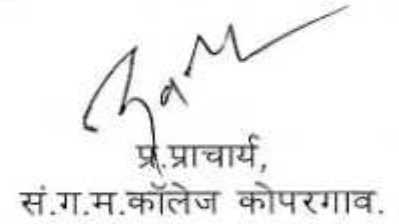 प्र.प्राचार्य,
सं.ग.म.कॉलेज कोपरगाव.